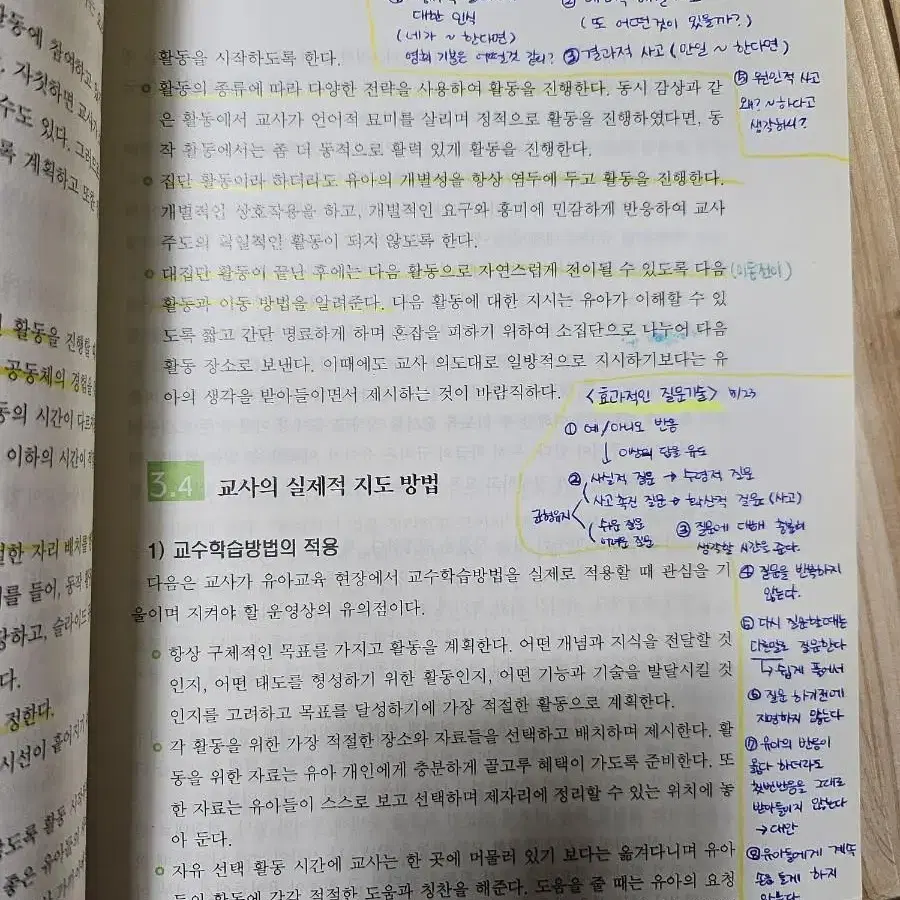 대한 인식
(네가 ~ 한다면)
(또 어떤것이 있을까?)
③ 결과적 사고 (만일 ~ 한다면)
⑤ 원인적 사고
왜? ~하다고
생각하니?
활동을 시작하도록 한다.
활동의 종류에 따라 다양한 전략을 사용하여 활동을 진행한다. 동시 감상과 같
은 활동에서 교사가 언어적 묘미를 살리며 정적으로 활동을 진행하였다면, 동
작 활동에서는 좀 더 동적으로 활력 있게 활동을 진행한다.
집단 활동이라 하더라도 유아의 개별성을 항상 염두에 두고 활동을 진행한다.
개별적인 상호작용을 하고, 개별적인 요구와 흥미에 민감하게 반응하여 교사
주도의 획일적인 활동이 되지 않도록 한다.
대집단 활동이 끝난 후에는 다음 활동으로 자연스럽게 전이될 수 있도록 다음 (이동전이)
활동과 이동 방법을 알려준다. 다음 활동에 대한 지시는 유아가 이해할 수 있
도록 짧고 간단 명료하게 하며 혼잡을 피하기 위하여 소집단으로 나누어 다음
활동 장소로 보낸다. 이때에도 교사 의도대로 일방적으로 지시하기보다는 유
아의 생각을 받아들이면서 제시하는 것이 바람직하다.
<효과적인 질문기술>
① 예/아니오 반응
↓ 이상의 답을 유도
② 사실적 질문 → 수렴적 질문
사고촉진 질문 → 확산적 질문 (사고)
균형유지
쉬운 질문
어려운 질문
③ 질문에 대해 충분히
생각할 시간을 준다.
④ 질문을 반복하지
않는다.
⑤ 다시 질문할때는
다른말로 질문한다
↳ 쉽게 풀어서
⑥ 질문 하기전에
지명하지 않는다
⑦ 유아의 반응이
옳다 하더라도
첫번반응을 그대로
받아들이지 않는다
→ 대안
⑧ 유아들에게 계속
3.4 교사의 실제적 지도 방법
1) 교수학습방법의 적용
다음은 교사가 유아교육 현장에서 교수학습방법을 실제로 적용할 때 관심을 기
울이며 지켜야 할 운영상의 유의점이다.
항상 구체적인 목표를 가지고 활동을 계획한다. 어떤 개념과 지식을 전달할 것
인지, 어떤 태도를 형성하기 위한 활동인지, 어떤 기능과 기술을 발달시킬 것
인지를 고려하고 목표를 달성하기에 가장 적절한 활동으로 계획한다.
각 활동을 위한 가장 적절한 장소와 자료들을 선택하고 배치하며 제시한다. 활
동을 위한 자료는 유아 개인에게 충분하게 골고루 혜택이 가도록 준비한다. 또
한 자료는 유아들이 스스로 보고 선택하며 제자리에 정리할 수 있는 위치에 놓
아 둔다.
자유 선택 활동 시간에 교사는 한 곳에 머물러 있기 보다는 옮겨다니며 유아
들의 활동에 각각 적절한 도움과 칭찬을 해준다. 도움을 줄 때는 유아의 요청